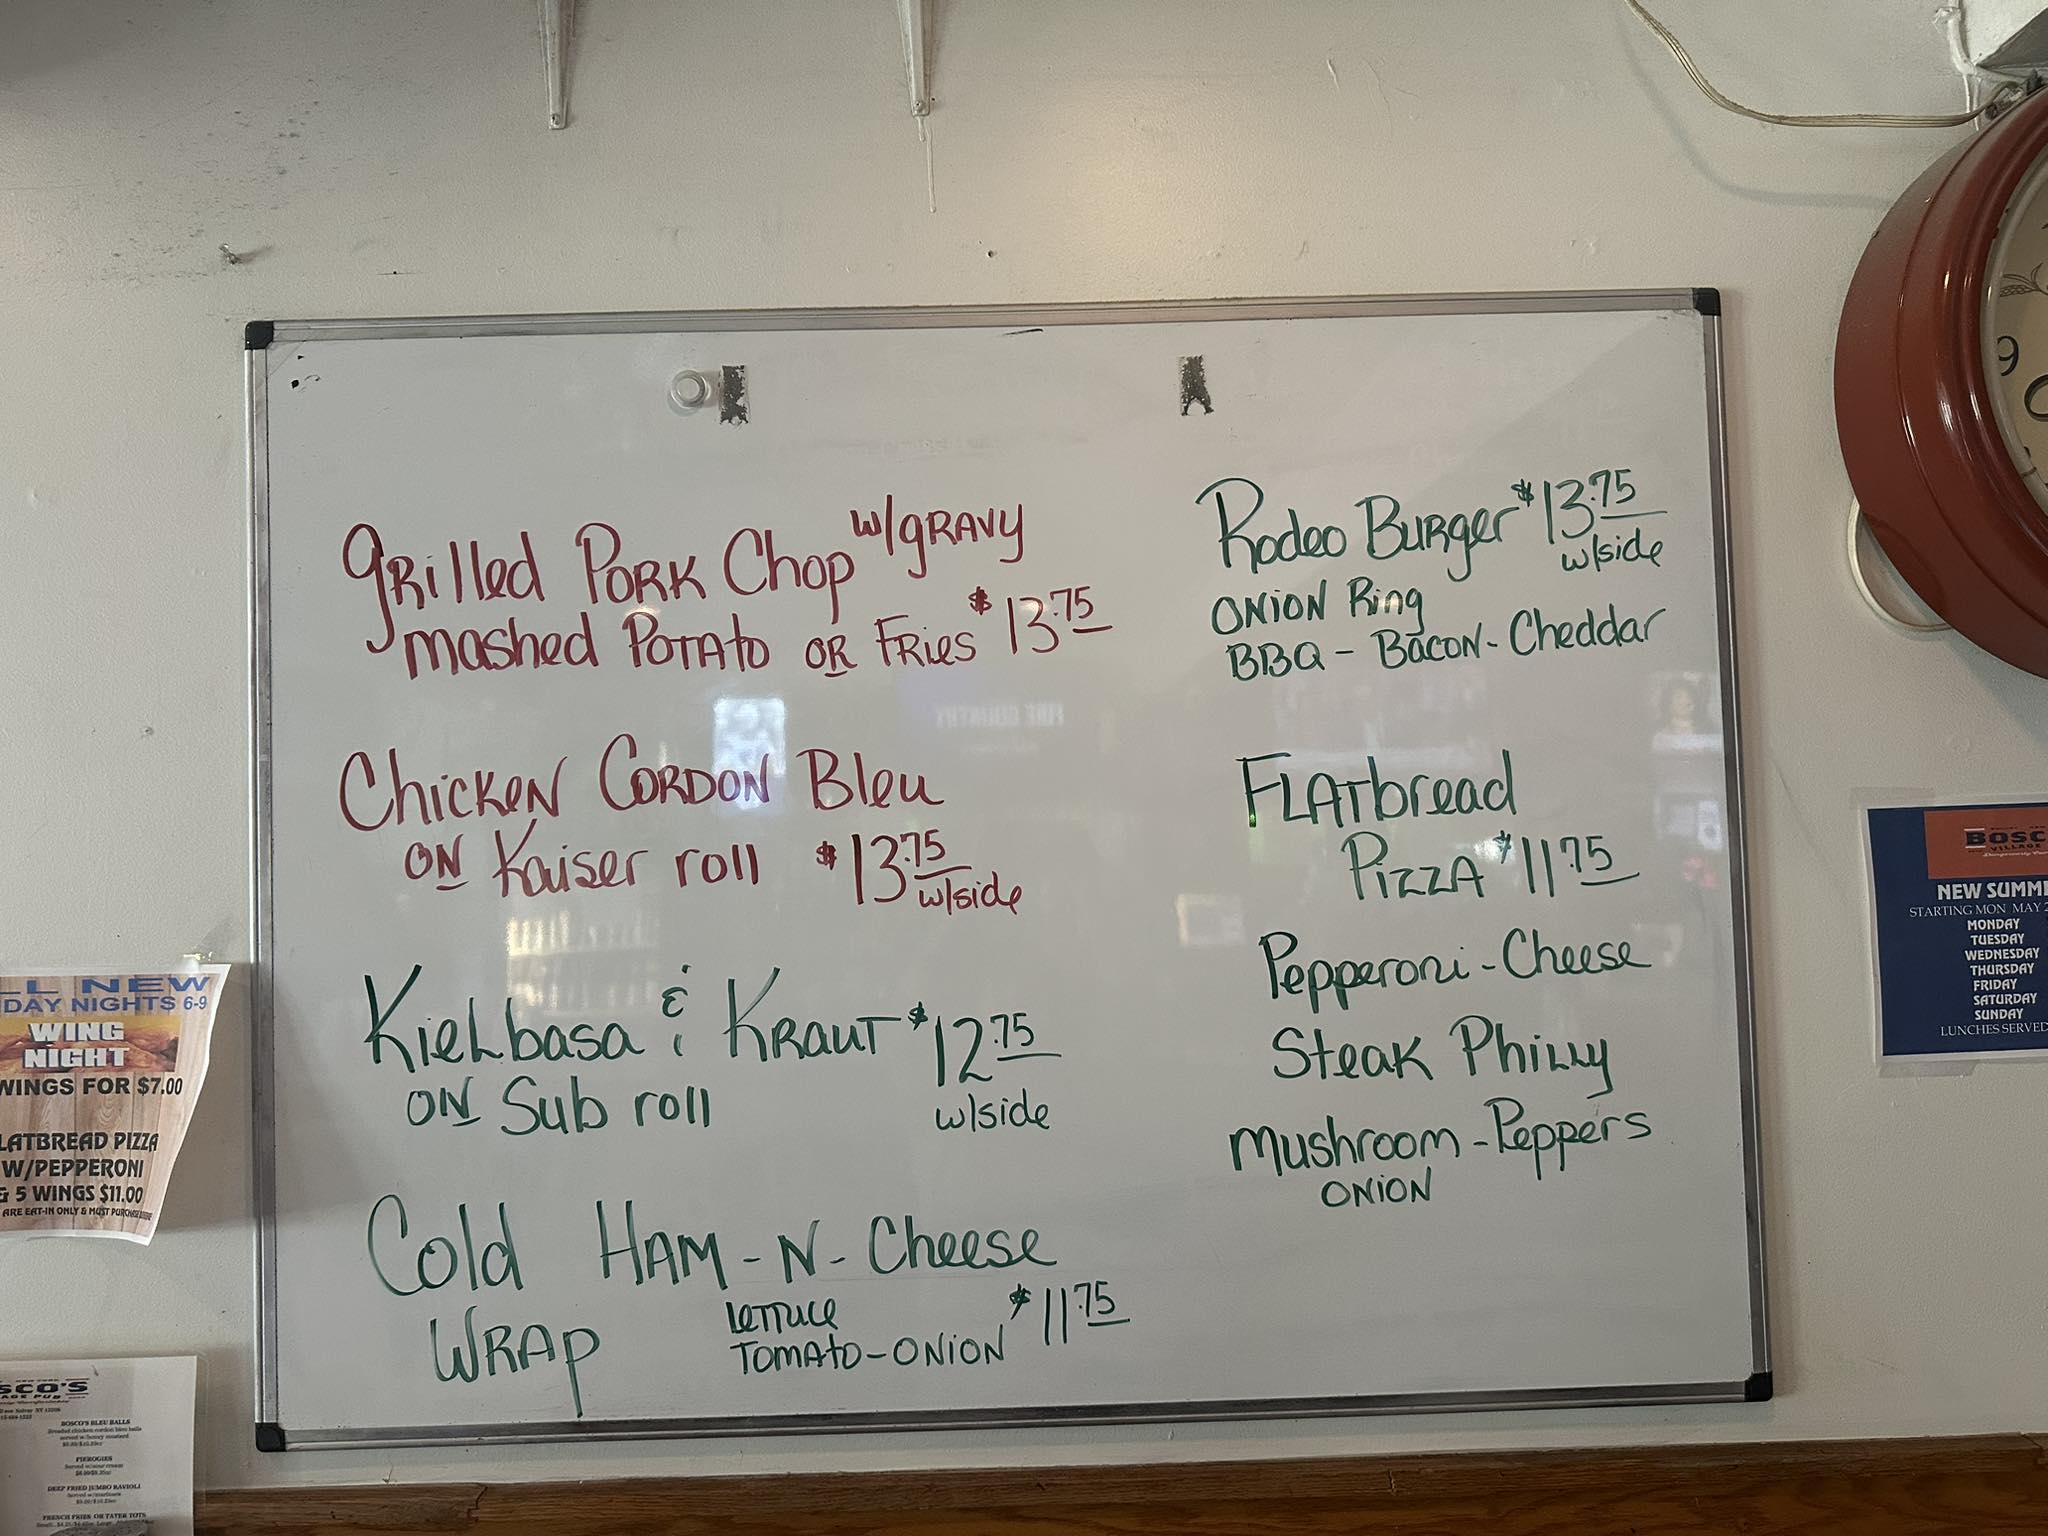 Grilled Pork Chop w/gravy
mashed Potato or Fries $13.75
Chicken Cordon Bleu
on Kaiser roll $13.75
w/side
Kielbasa & Kraut $12.75
on Sub roll w/side
Cold Ham-N-Cheese
Wrap
Lettuce
Tomato-Onion $11.75
Rodeo Burger $13.75
w/side
Onion Ring
BBQ - Bacon - Cheddar
Flatbread
Pizza $11.75
Pepperoni - Cheese
Steak Philly
Mushroom - Peppers
Onion
9
LL NEW
DAY NIGHTS 6-9
WING
NIGHT
WINGS FOR $7.00
LATBREAD PIZZA
W/PEPPERONI
& 5 WINGS $11.00
ARE EAT-IN ONLY & MUST PURCHASE
SCO'S
AGE PUB
BOSCO'S BLEU BALLS
Breaded chicken cordon bleu balls
served w/honey mustard
PIEROGIES
Served w/sour cream
DEEP FRIED JUMBO RAVIOLI
Served w/marinara
FRENCH FRIES OR TATER TOTS
BOSC
VILLAGE
NEW SUMM
STARTING MON MAY 2
MONDAY
TUESDAY
WEDNESDAY
THURSDAY
FRIDAY
SATURDAY
SUNDAY
LUNCHES SERVED